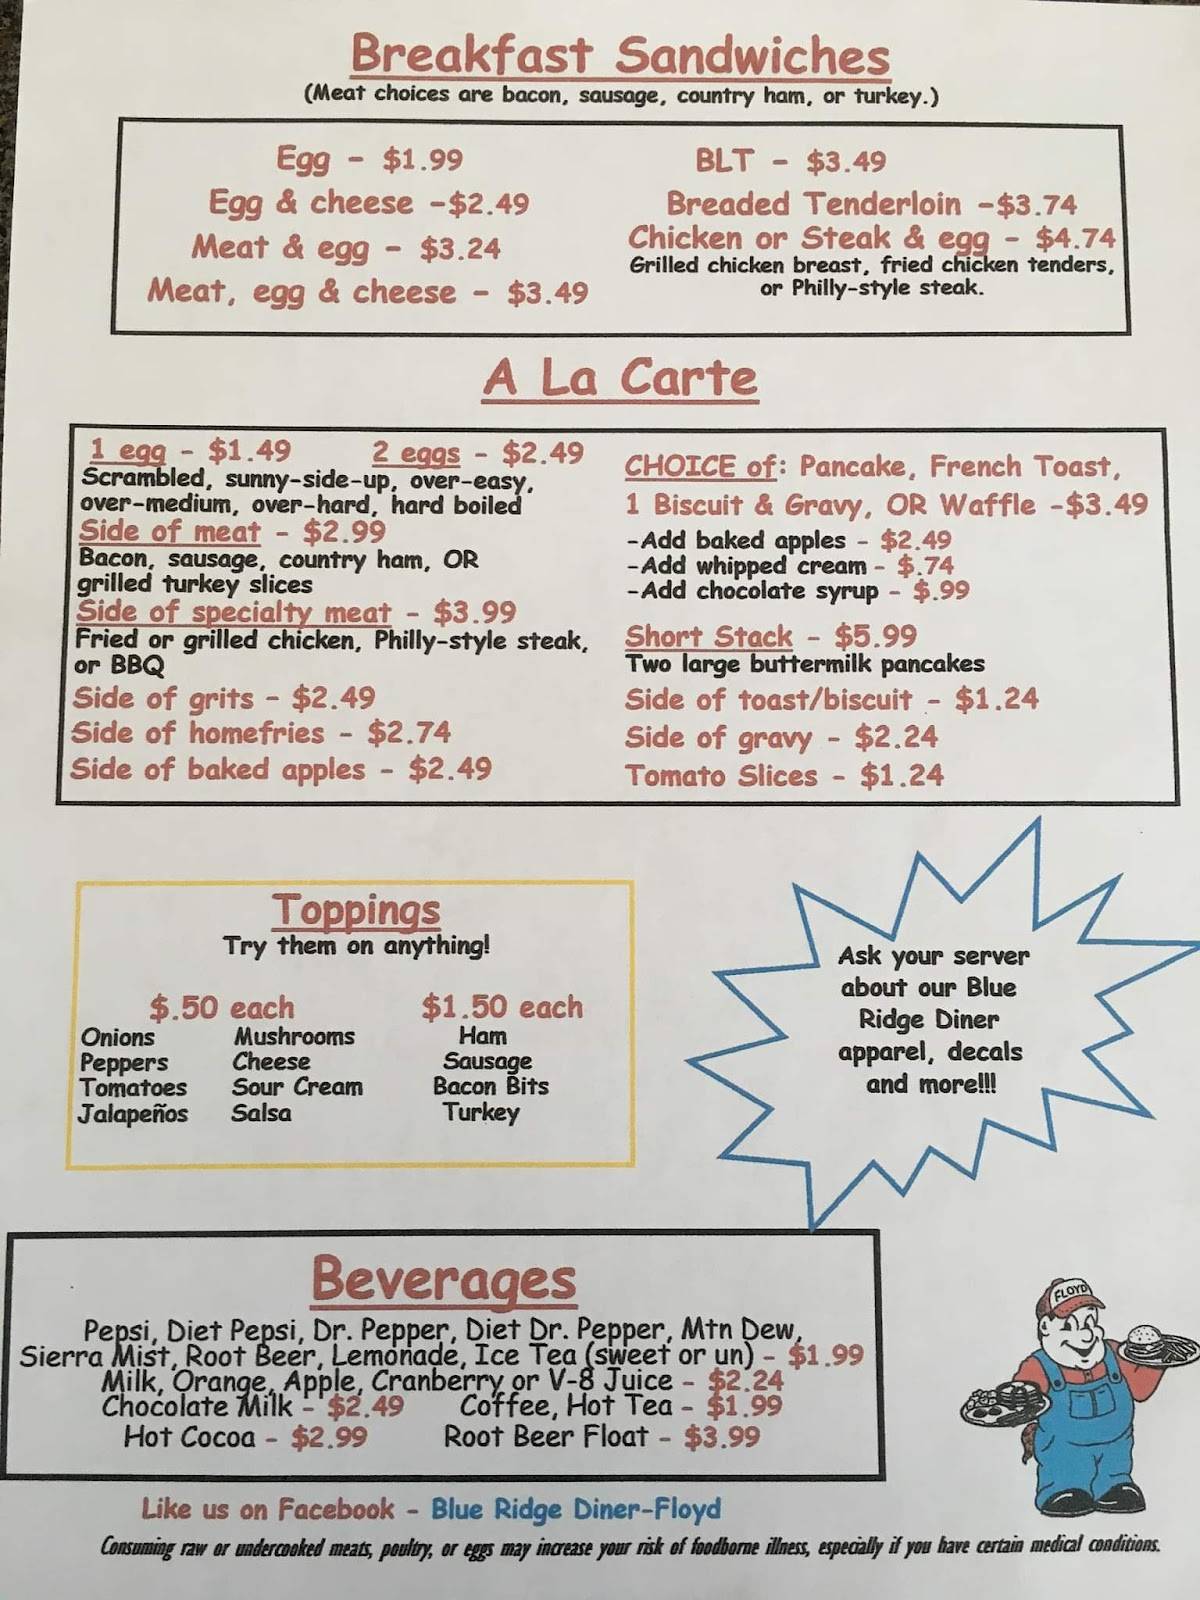 Breakfast Sandwiches
(Meat choices are bacon, sausage, country ham, or turkey.)
Egg - $1.99
Egg & cheese -$2.49
Meat & egg - $3.24
Meat, egg & cheese - $3.49
BLT - $3.49
Breaded Tenderloin -$3.74
Chicken or Steak & egg - $4.74
Grilled chicken breast, fried chicken tenders,
or Philly-style steak.
A La Carte
1 egg - $1.49 2 eggs - $2.49
Scrambled, sunny-side-up, over-easy,
over-medium, over-hard, hard boiled
Side of meat - $2.99
Bacon, sausage, country ham, OR
grilled turkey slices
Side of specialty meat - $3.99
Fried or grilled chicken, Philly-style steak,
or BBQ
Side of grits - $2.49
Side of homefries - $2.74
Side of baked apples - $2.49
CHOICE of: Pancake, French Toast,
1 Biscuit & Gravy, OR Waffle -$3.49
-Add baked apples - $2.49
-Add whipped cream - $.74
-Add chocolate syrup - $.99
Short Stack - $5.99
Two large buttermilk pancakes
Side of toast/biscuit - $1.24
Side of gravy - $2.24
Tomato Slices - $1.24
Toppings
Try them on anything!
$.50 each $1.50 each
Onions Mushrooms Ham
Peppers Cheese Sausage
Tomatoes Sour Cream Bacon Bits
Jalapeños Salsa Turkey
Ask your server
about our Blue
Ridge Diner
apparel, decals
and more!!!
Beverages
Pepsi, Diet Pepsi, Dr. Pepper, Diet Dr. Pepper, Mtn Dew,
Sierra Mist, Root Beer, Lemonade, Ice Tea (sweet or un) - $1.99
Milk, Orange, Apple, Cranberry or V-8 Juice - $2.24
Chocolate Milk - $2.49 Coffee, Hot Tea - $1.99
Hot Cocoa - $2.99 Root Beer Float - $3.99
FLOYD
Like us on Facebook - Blue Ridge Diner-Floyd
Consuming raw or undercooked meats, poultry, or eggs may increase your risk of foodborne illness, especially if you have certain medical conditions.